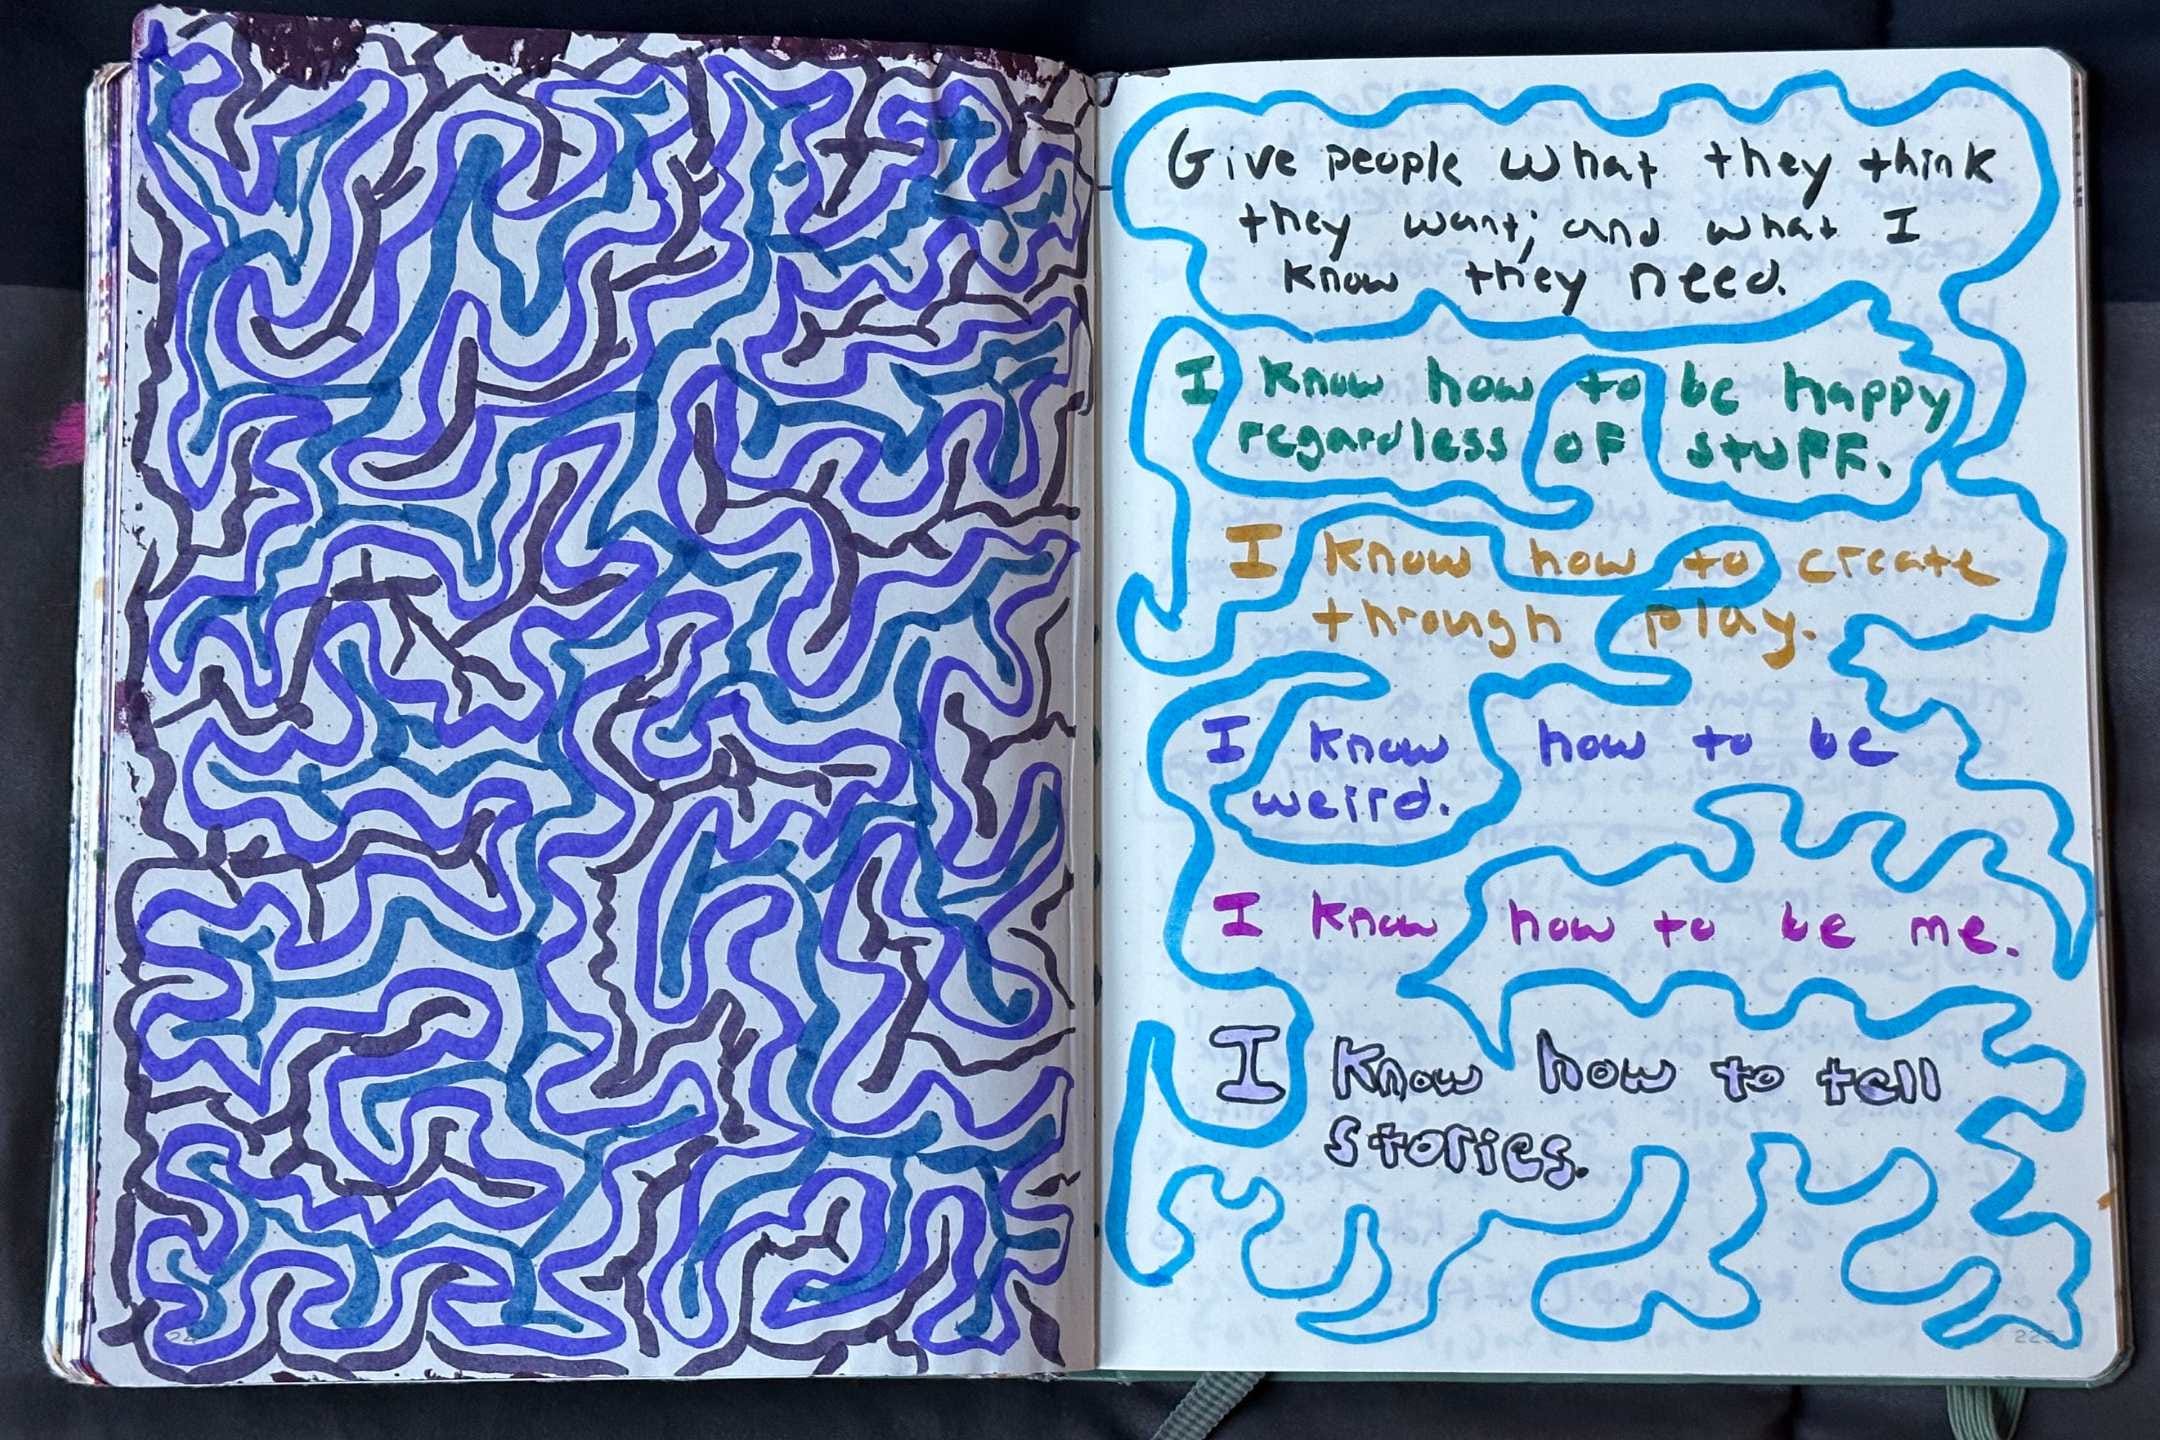 Give people what they think
they want; and what I
know they need.
I know how to be happy
regardless of stuff.
I know how to create
through play.
I know how to be
weird.
I know how to be me.
I know how to tell
stories.